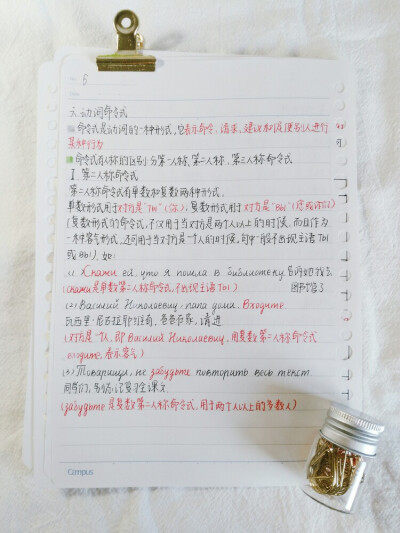 6
六.动词命令式
命令式是动词的一种形式,它表示命令、请求、建议和促使别人进行
某种行为
命令式有人称的区别,分第一人称,第二人称,第三人称命令式
I 第二人称命令式
第二人称命令式有单数和复数两种形式.
单数形式用于对方是"ты"(你);复数形式用于对方是"вы"(您或你们)
(复数形式的命令式,不仅用于当对方是两个人以上的时候,而且作为
一种客气形式,还可用于当对方是一个人的时候,句中一般不出现主语ты
或вы). 如:
(1) Скажи ей, что я пошла в библиотеку. 告诉她我去
(скажи是单数第二人称命令式,不出现主语ты) 图书馆了
(2) Василий Николаевич, папа дома. Входите
瓦西里·尼古拉耶维奇,爸爸在家,请进
(对方是一人,即 Василий Николаевич, 用复数第二人称命令式
входите, 表示客气)
(3) Товарищи, не забудьте повторить весь текст.
同学们,别忘记复习全课文.
(забудьте 是复数第二人称命令式,用于两个人以上的多数人)
Campus